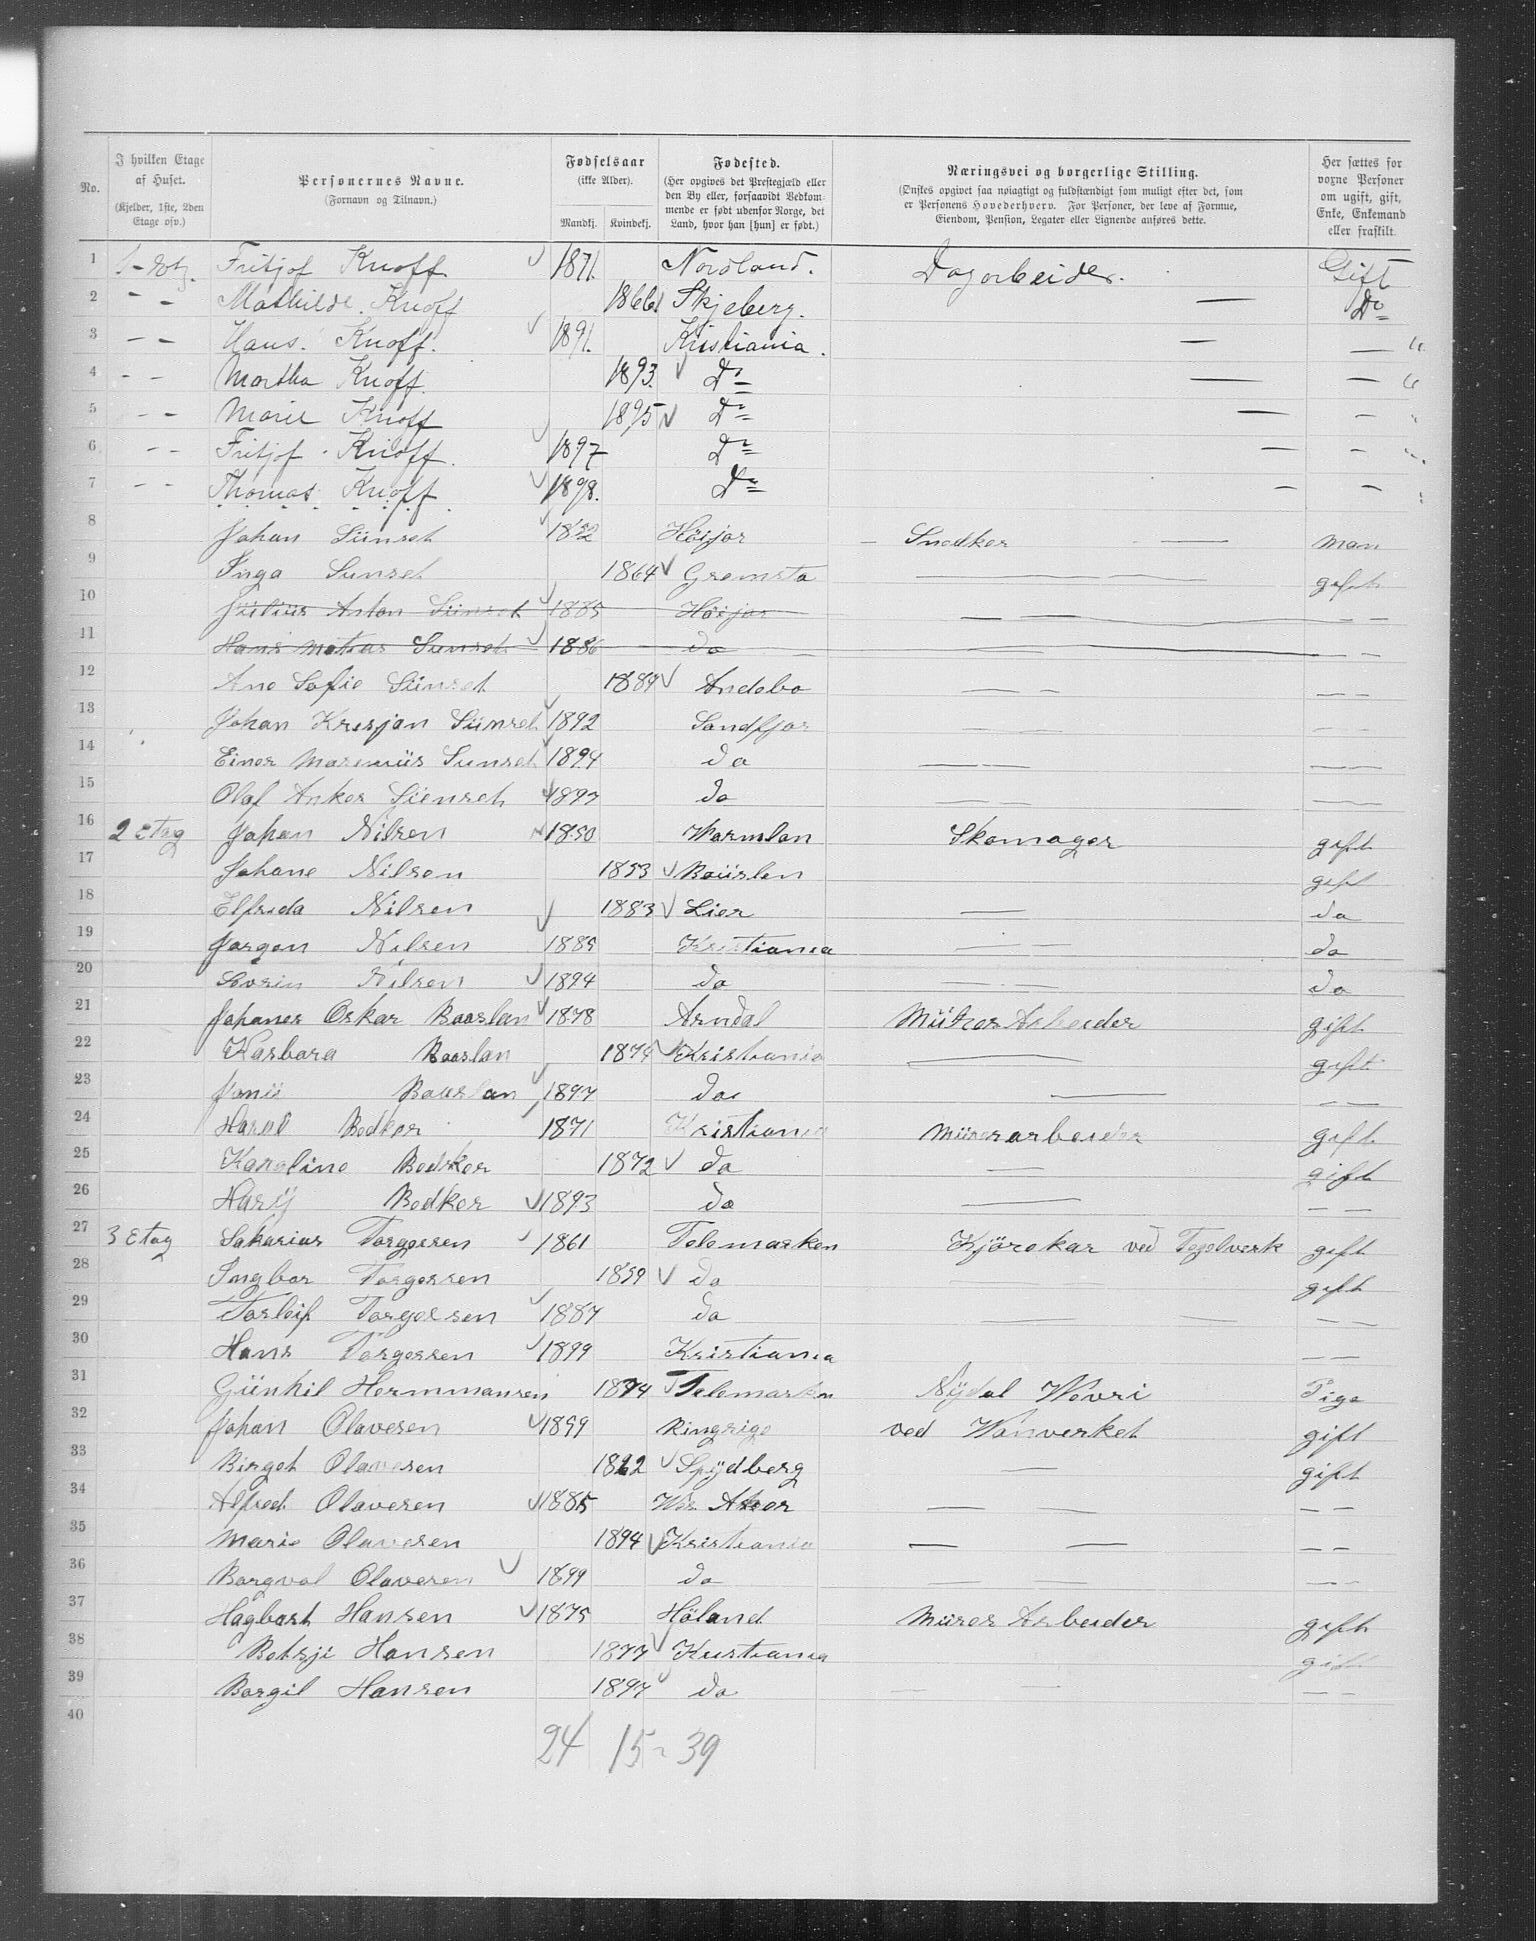 No. | I hvilken Etage af Huset. (Kjelder, 1ste, 2den Etage osv.) | Personernes Navne. (Fornavn og Tilnavn.) | Fødselsaar (ikke Alder). Mandkj. Kvindekj. | Fødested. (Her opgives det Prestegjæld eller den By eller, forsaavidt Vedkommende er født udenfor Norge, det Land, hvor han [hun] er født.) | Næringsvei og borgerlige Stilling. (Ønskes opgivet saa nøiagtigt og fuldstændigt som muligt efter det, som er Personens Hovederhverv. For Personer, der leve af Formue, Eiendom, Pension, Legater eller Lignende anføres dette.) | Her sættes for voxne Personer om ugift, gift, Enke, Enkemand eller fraskilt.
1 Fritjof Knoff. 1871. Nordland. Dagarbeider. Gift
2 - - Mathilde. Knoff 1866. Skjeberg. — Do
3 - - Hans. Knoff. 1891. Kristiania. — — "
4 - - Martha Knoff. 1893. Do — — "
5 - - Marie Knoff 1895 Do — — "
6 - - Fritjof Knoff. 1897 Do — — "
7 - - Thomas Knoff 1898. Do — — "
8 Johan Sünset 1852 Höijor - Snedker — man
9 Inga Sunset 1864 Gremsta — gift
10 Julius Anton Sünset 1885 Höijor — —
11 Hans Matias Sunset 1886 do — —
12 Ane Sofie Sünset 1889 Andebo — —
13 Johan Kresjan Sünset 1892 Sandfjor — —
14 Einer Marenius Sunset 1894 do — —
15 Olaf Anker Sienset 1897 do — —
16 2 etag Johan Nilsen 1850 Varmlan Skomager gift
17 Johane Nilsen 1853 Baüslen gift
18 Elfrida Nilsen 1883 Lier — do
19 Jørgen Nilsen 1885 Kristiania — do
20 Soverin Nilsen 1894 do — do
21 Johanes Oskar Baaslan 1878 Arndal Mürer Arbeider gift
22 Karbara Baaslan 1874 Kristiania — gift
23 Jonii Baaslan 1897 do — —
24 Haral Bedker 1871 Kristiania Mürerarbeider gift
25 Karoline Bedker 1872 do — gift
26 Harij Bedker 1893 do — —
27 3 Etag Sakarias Torgersen 1861 Telemarken Kjörekar ved Tegelverk gift
28 Ingbor Torgersen 1859 do — gift
29 Torleif Torgersen 1887 do — —
30 Hans Torgersen 1899 Kristiania —
31 Günhil Hermmansen 1874 Telemarken Nÿdal Vevri Pige
32 Johan Olavesen 1859 Ringrige ved Vanverket gift
33 Birget Olavesen 1862 Spÿdberg — gift
34 Alfred Olavesen 1885 Ves Aker — —
35 Marie Olavesen 1894 Kristiania — —
36 Borgval Olavesen 1899 do — —
37 Hagbart Hansen 1875 Höland Mürer Arbeider gift
38 Betsji Hansen 1877 Kristiania gift
39 Borgil Hansen 1897 do — —
40
24 15 = 39